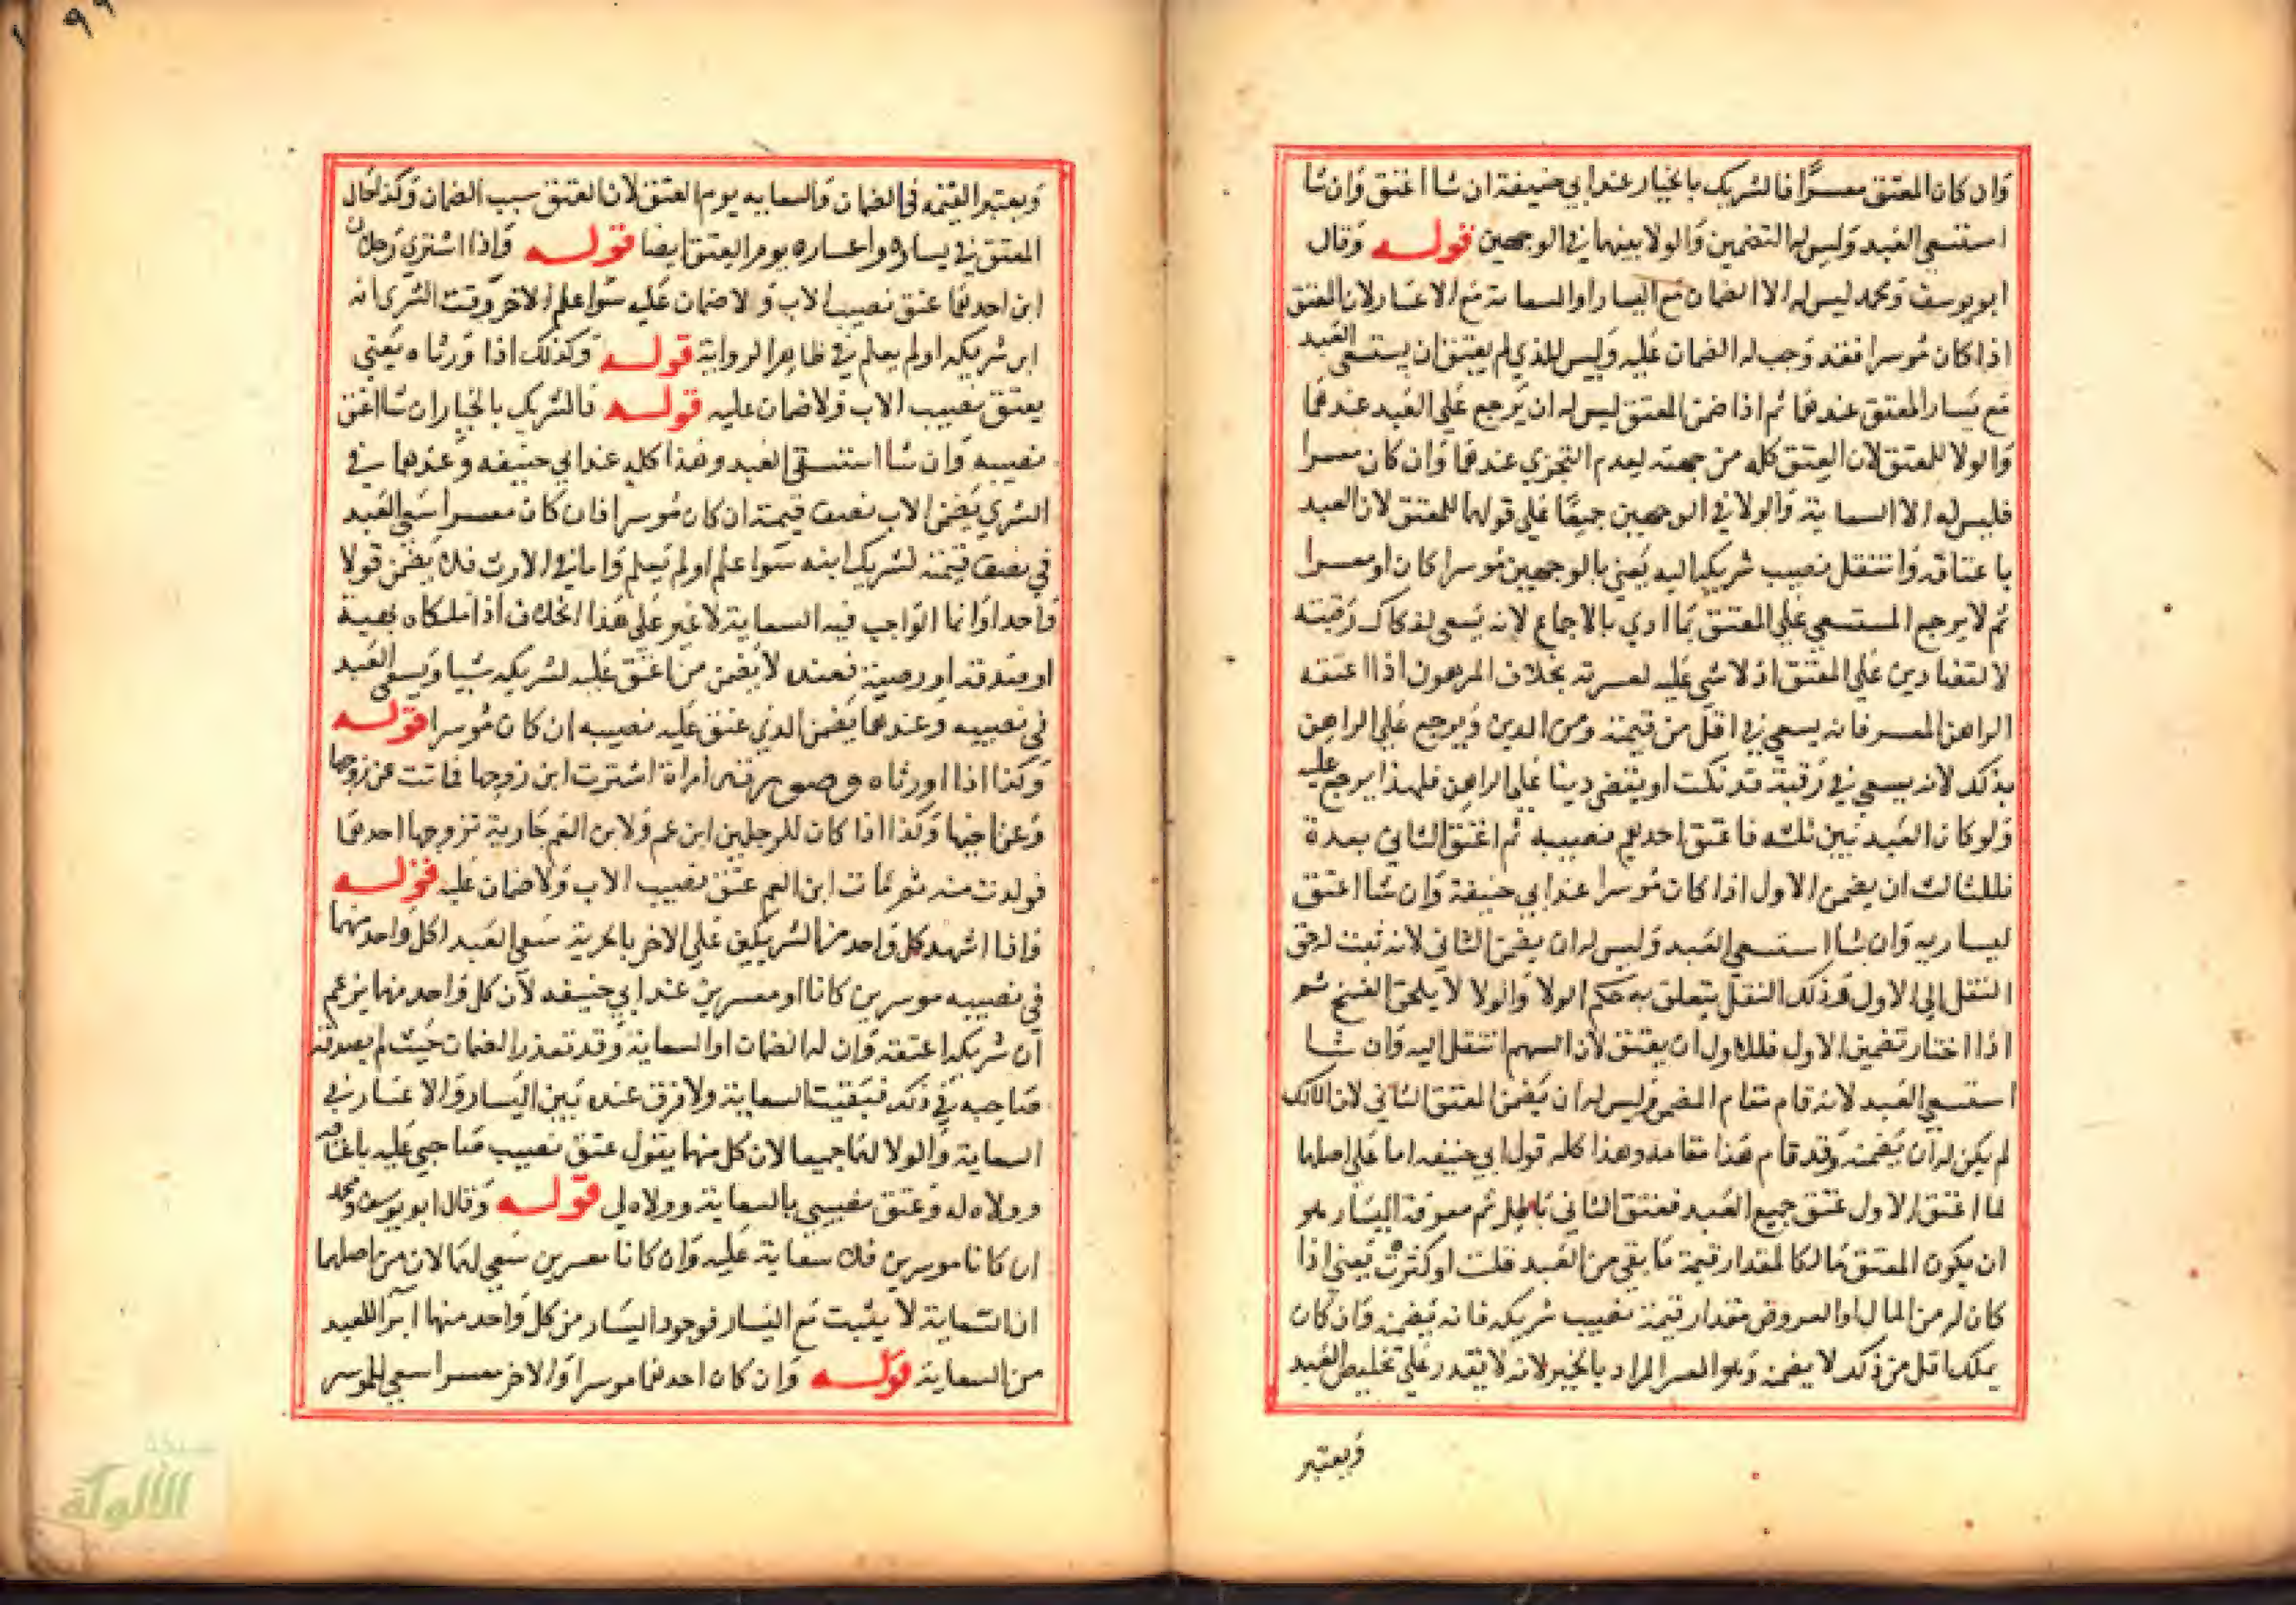 وان كان المعتق معسرا فالشريك بالخيار عند ابي حنيفة ان شا اعتق وان شا
استسعى العبد وليس له التضمين والولا بينهما في الوجهين قوله وقال
ابو يوسف ومحمد ليس له الا الضمان مع اليسار او السعاية مع الاعسار لان المعتق
اذا كان موسرا فقد وجب له الضمان عليه وليس للذي لم يعتق ان يستسعى العبد
مع يسار المعتق عندهما ثم اذا ضمن المعتق ليس له ان يرجع على العبد عندهما
والولا للمعتق لان العتق كله من جهته لعدم التجزي عندهما وان كان معسرا
فليس له الا السعاية والولا في الوجهين جميعا على قولهما للمعتق لان العبد
باعتاقه وانتقل نصيب شريكه اليه يعني بالوجهين موسرا كان او معسرا
ثم لا يرجع المستسعي على المعتق بما ادي بالاجماع لانه يسعى لفكاك رقبته
لا لقضا دين على المعتق اذ لا شي عليه لعسرته بخلاف المرهون اذا اعتقه
الراهن المعسر فانه يسعي في اقل من قيمته ومن الدين ويرجع على الراهن
بذلك لانه يسعي في رقبة قد فكت او يقضي دينا على الراهن فلهذا يرجع عليه
ولو كان العبد بين ثلثه فاعتق احدهم نصيبه ثم اعتق الثاني بعده
فللثالث ان يضمن الاول اذا كان موسرا عند ابي حنيفة وان شا اعتق
ليساريه وان شا استسعي العبد وليس له ان يضمن الثاني لانه ثبت له حق
النقل الى الاول وذلك النقل يتعلق به حكم الولا والولا لا يلحق الفسخ ثم
اذا اختار تضمين الاول فللاول ان يعتق لان السهم انتقل اليه وان شا
استسعي العبد لانه قام مقام المضمن وليس له ان يضمن المعتق الثاني لان المالك
لم يكن له ان يضمنه وقد قام هذا مقامه وهذا كله قول ابي حنيفه اما على اصلهما
لما اعتق الاول عتق جميع العبد فعتق الثاني باطل ثم معرفة اليسار هو
ان يكون المعتق مالكا لمقدار قيمة ما بقي من العبد قلت او كثرت يعني اذا
كان له من المال او العروض مقدار قيمة نصيب شريكه فانه يضمن وان كان
يملك اقل من ذلك لا يضمن وهو العسر المراد بالخبر لانه لا يقدر على تخليص العبد
ويعتبر
ويعتبر القيمه في الضمان والسعايه يوم العتق لان العتق سبب الضمان وكذا حال
المعتق في يساره واعساره يوم العتق ايضا قوله واذا اشتري رجلان
ابن احدهما عتق نصيب الاب ولا ضمان عليه سوا علم الاخر وقت الشرى انه
ابن شريكه او لم يعلم في ظاهر الرواية قوله وكذلك اذا ورثاه يعني
يعتق نصيب الاب ولا ضمان عليه قوله فالشريك بالخيار ان شا اعتق
نصيبه وان شا استسقى العبد وهذا كله عند ابي حنيفه وعندهما في
الشري يضمن الاب نصف قيمته ان كان موسرا فان كان معسرا سعي العبد
في نصف قيمته لشريك ابنه سوا علم او لم يعلم واما في الارث فلا يضمن قولا
واحدا وانما الواجب فيه السعاية لا غير على هذا الخلاف اذا ملكاه بهبة
او صدقة او وصية فعنده لا يضمن من اعتق عليه لشريكه شيا ويسعى العبد
في نصيبه وعندهما يضمن الذي عتق عليه نصيبه ان كان موسرا قوله
وكذا اذا اورثاه وصورته امراة اشترت ابن زوجها فماتت عن زوجها
وعن اخيها وكذا اذا كان للرجلين ابن عم ولابن العم جارية تزوجها احدهما
فولدت منه ثم مات ابن العم عتق نصيب الاب ولا ضمان عليه قوله
واذا اشهد كل واحد من الشريكين على الاخر بالحرية سعى العبد لكل واحد منهما
في نصيبه موسرين كانا او معسرين عند ابي حنيفه لان كل واحد منهما يزعم
ان شريكه اعتقه وان له الضمان او السعاية وقد تعذر الضمان حيث لم يصدقه
صاحبه في ذلك فبقيت السعاية ولا فرق عنده بين اليسار والاعسار في
السعاية والولا لهما جميعا لان كل منهما يقول عتق نصيب صاحبي عليه باعتاقه
وولاه له وعتق نصيبي بالسعاية وولاه لي قوله وقال ابو يوسف ومحمد
ان كانا موسرين فلا سعاية عليه وان كانا معسرين سعي لهما لان من اصلهما
ان السعاية لا يثبت مع اليسار فوجود اليسار من كل واحد منهما ابرا للعبد
من السعاية قوله وان كان احدهما موسرا والاخر معسرا سعي للموسر
الألوكة